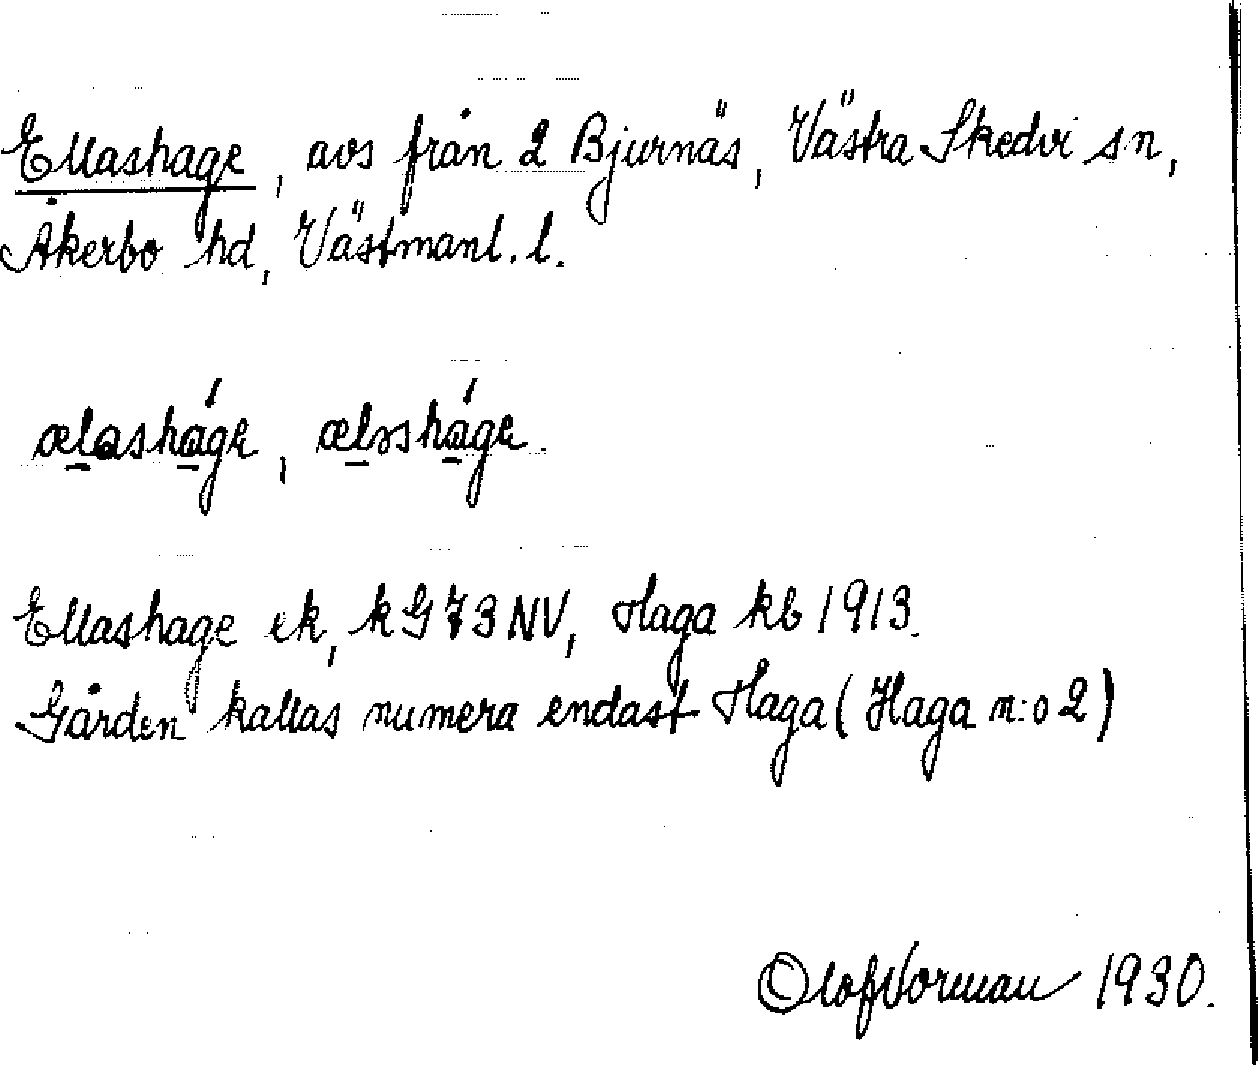 Ellashage, avs från 2 Bjurnäs, Västra Skedvi sn,
Åkerbo hd, Västmanl. l.
ælashage, ælsshage.
Ellashage ek, kG 73 NV, Haga kb 1913.
Gården kallas numera endast Haga (Haga n:o 2)
Olof Vorman 1930.